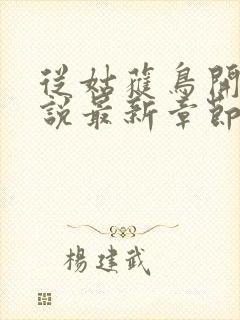 從姑蘿鳥開
說最新章節
楊建武